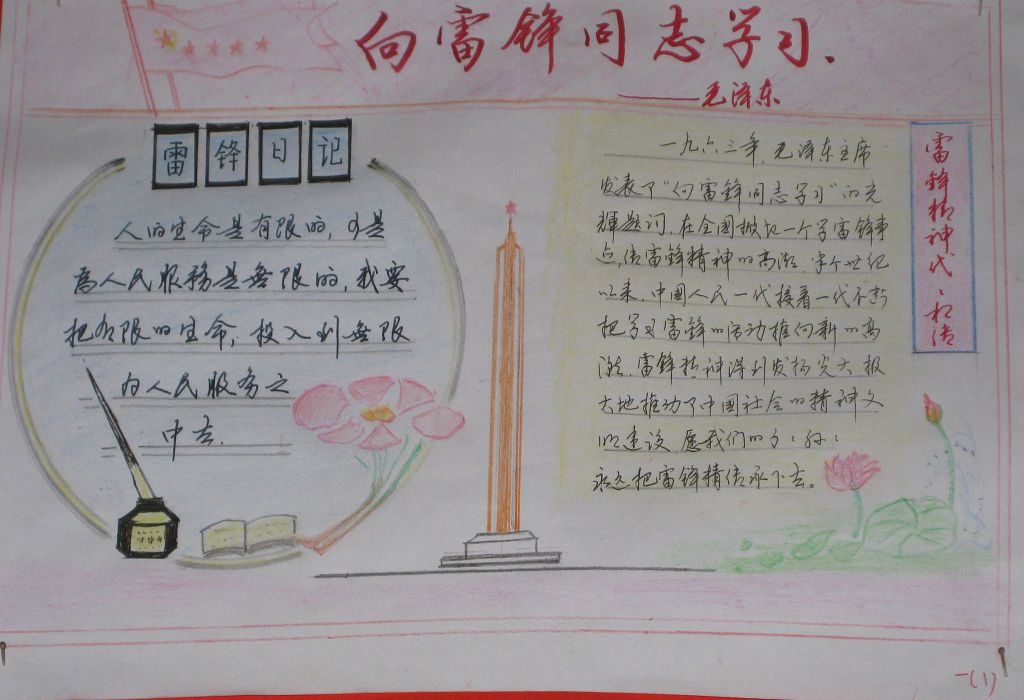 向雷锋同志学习.
——毛泽东
雷锋日记
人的生命是有限的,可是
为人民服务是無限的,我要
把有限的生命,投入到無限
的人民服务之
中去.
一九六三年,毛泽东主席
发表了“向雷锋同志学习”的光
辉题词,在全国掀起一个学雷锋事
点,传雷锋精神的高潮.半个世纪
以来,中国人民一代接着一代不断
把学习雷锋的活动推向新的高
潮.雷锋精神得到发扬光大极
大地推动了中国社会的精神文
明建设.愿我们的子:孙:
永远把雷锋精传承下去。
雷锋精神代:相传
一(1)